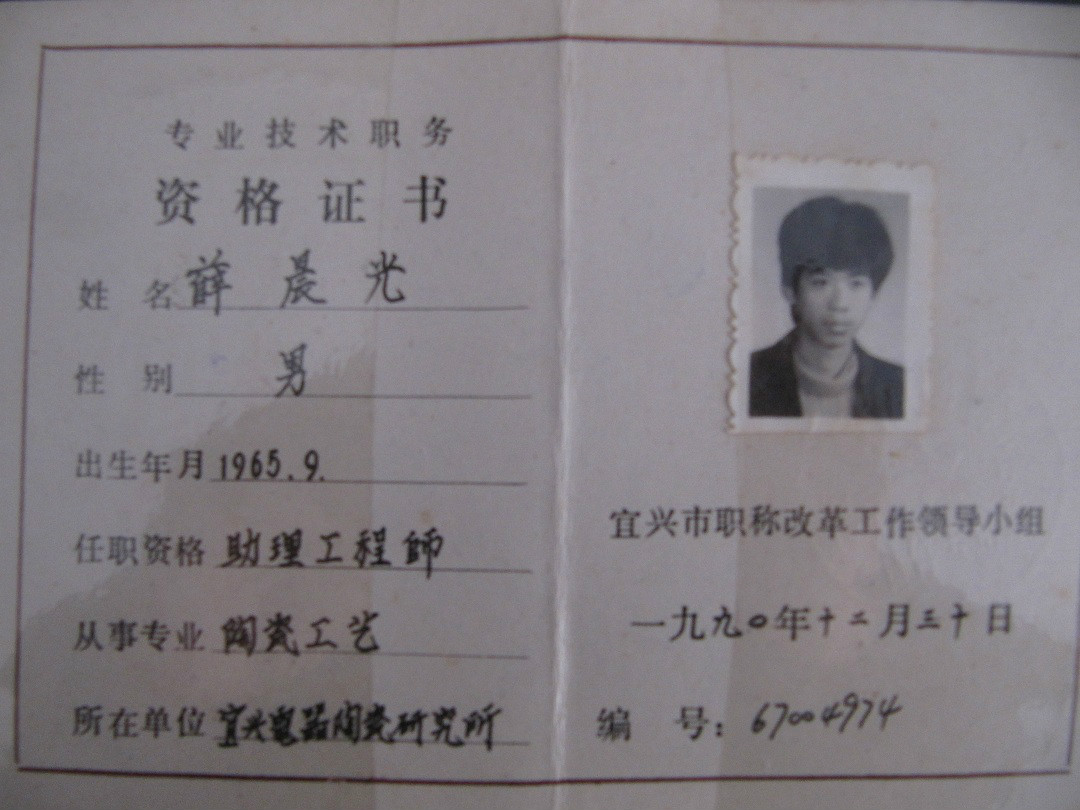 专业技术职务
资格证书
姓名 薛晨光
性别 男
出生年月 1965.9.
任职资格 助理工程師
从事专业 陶瓷工艺
所在单位 宜兴電器陶瓷研究所
宜兴市职称改革工作领导小组
一九九〇年十二月三十日
编号：67004974